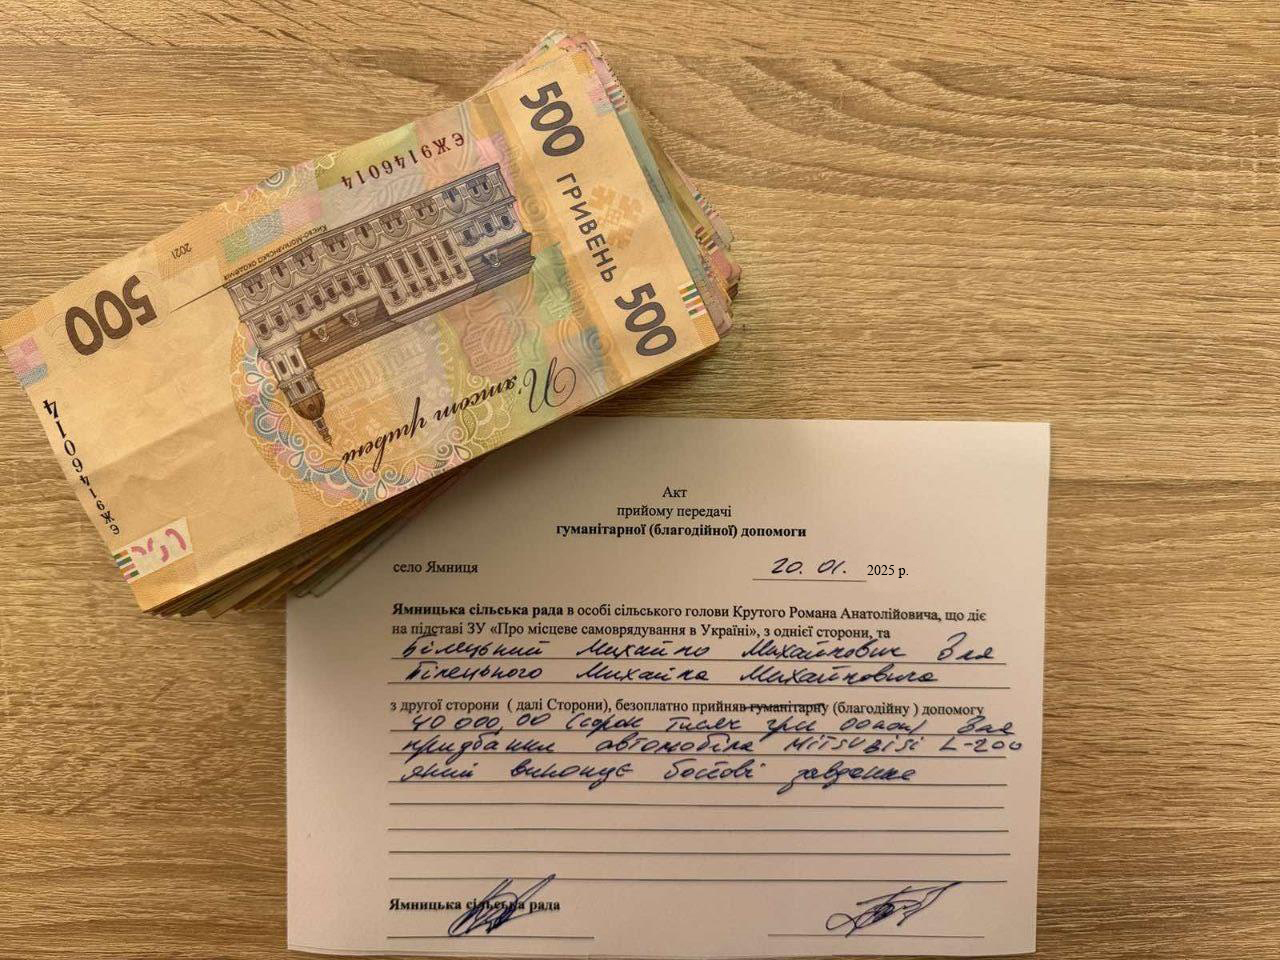 500 ГРИВЕНЬ 500
ЄЖ9146014
КИЄВО-МОГИЛЯНСЬКА АКАДЕМІЯ
2021
500
П'ятсот гривень
ЄЖ9146014
Акт
прийому передачі
гуманітарної (благодійної) допомоги
село Ямниця 20. 01. 2025 р.
Ямницька сільська рада в особі сільського голови Крутого Романа Анатолійовича, що діє
на підставі ЗУ «Про місцеве самоврядування в Україні», з однієї сторони, та
Білецький Михайло Михайлович Для
Білецького Михайла Михайловича
з другої сторони ( далі Сторони), безоплатно прийняв гуманітарну (благодійну ) допомогу
40 000,00 (сорок тисяч грн 00 коп) Для
придбання автомобіля MITSUBISI L-200
який виконує бойові завдання
Ямницька сільська рада